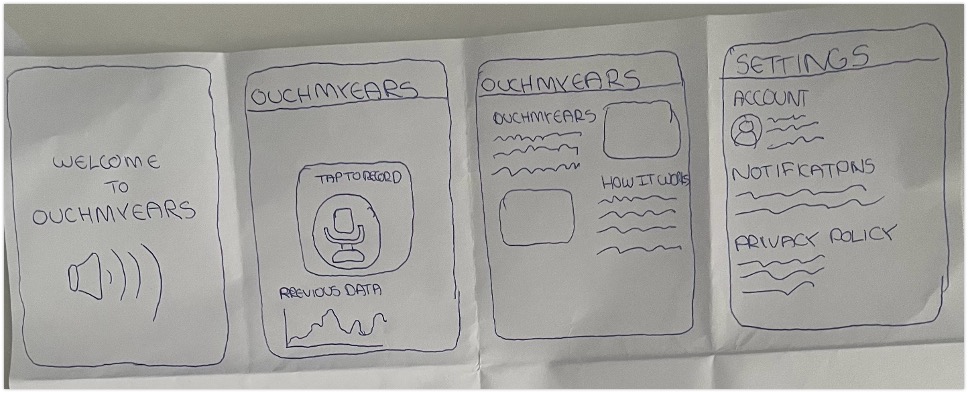 WELCOME
TO
OUCHMYEARS
OUCHMYEARS
TAP TO RECORD
PREVIOUS DATA
OUCHMYEARS
OUCHMYEARS
HOW IT WORKS
SETTINGS
ACCOUNT
NOTIFICATIONS
PRIVACY POLICY